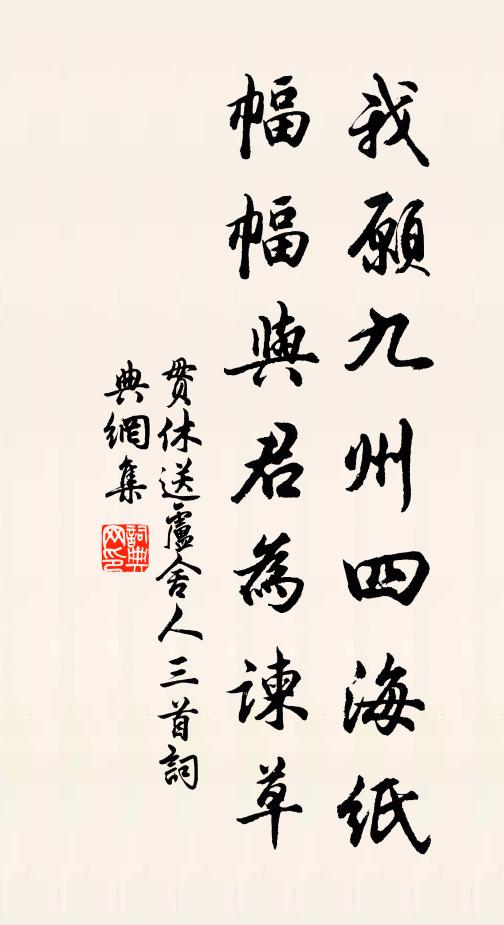 我願九州四海紙
幅幅與君為諫草
貫休送盧舍人三首詞
典網集
詞典
网印